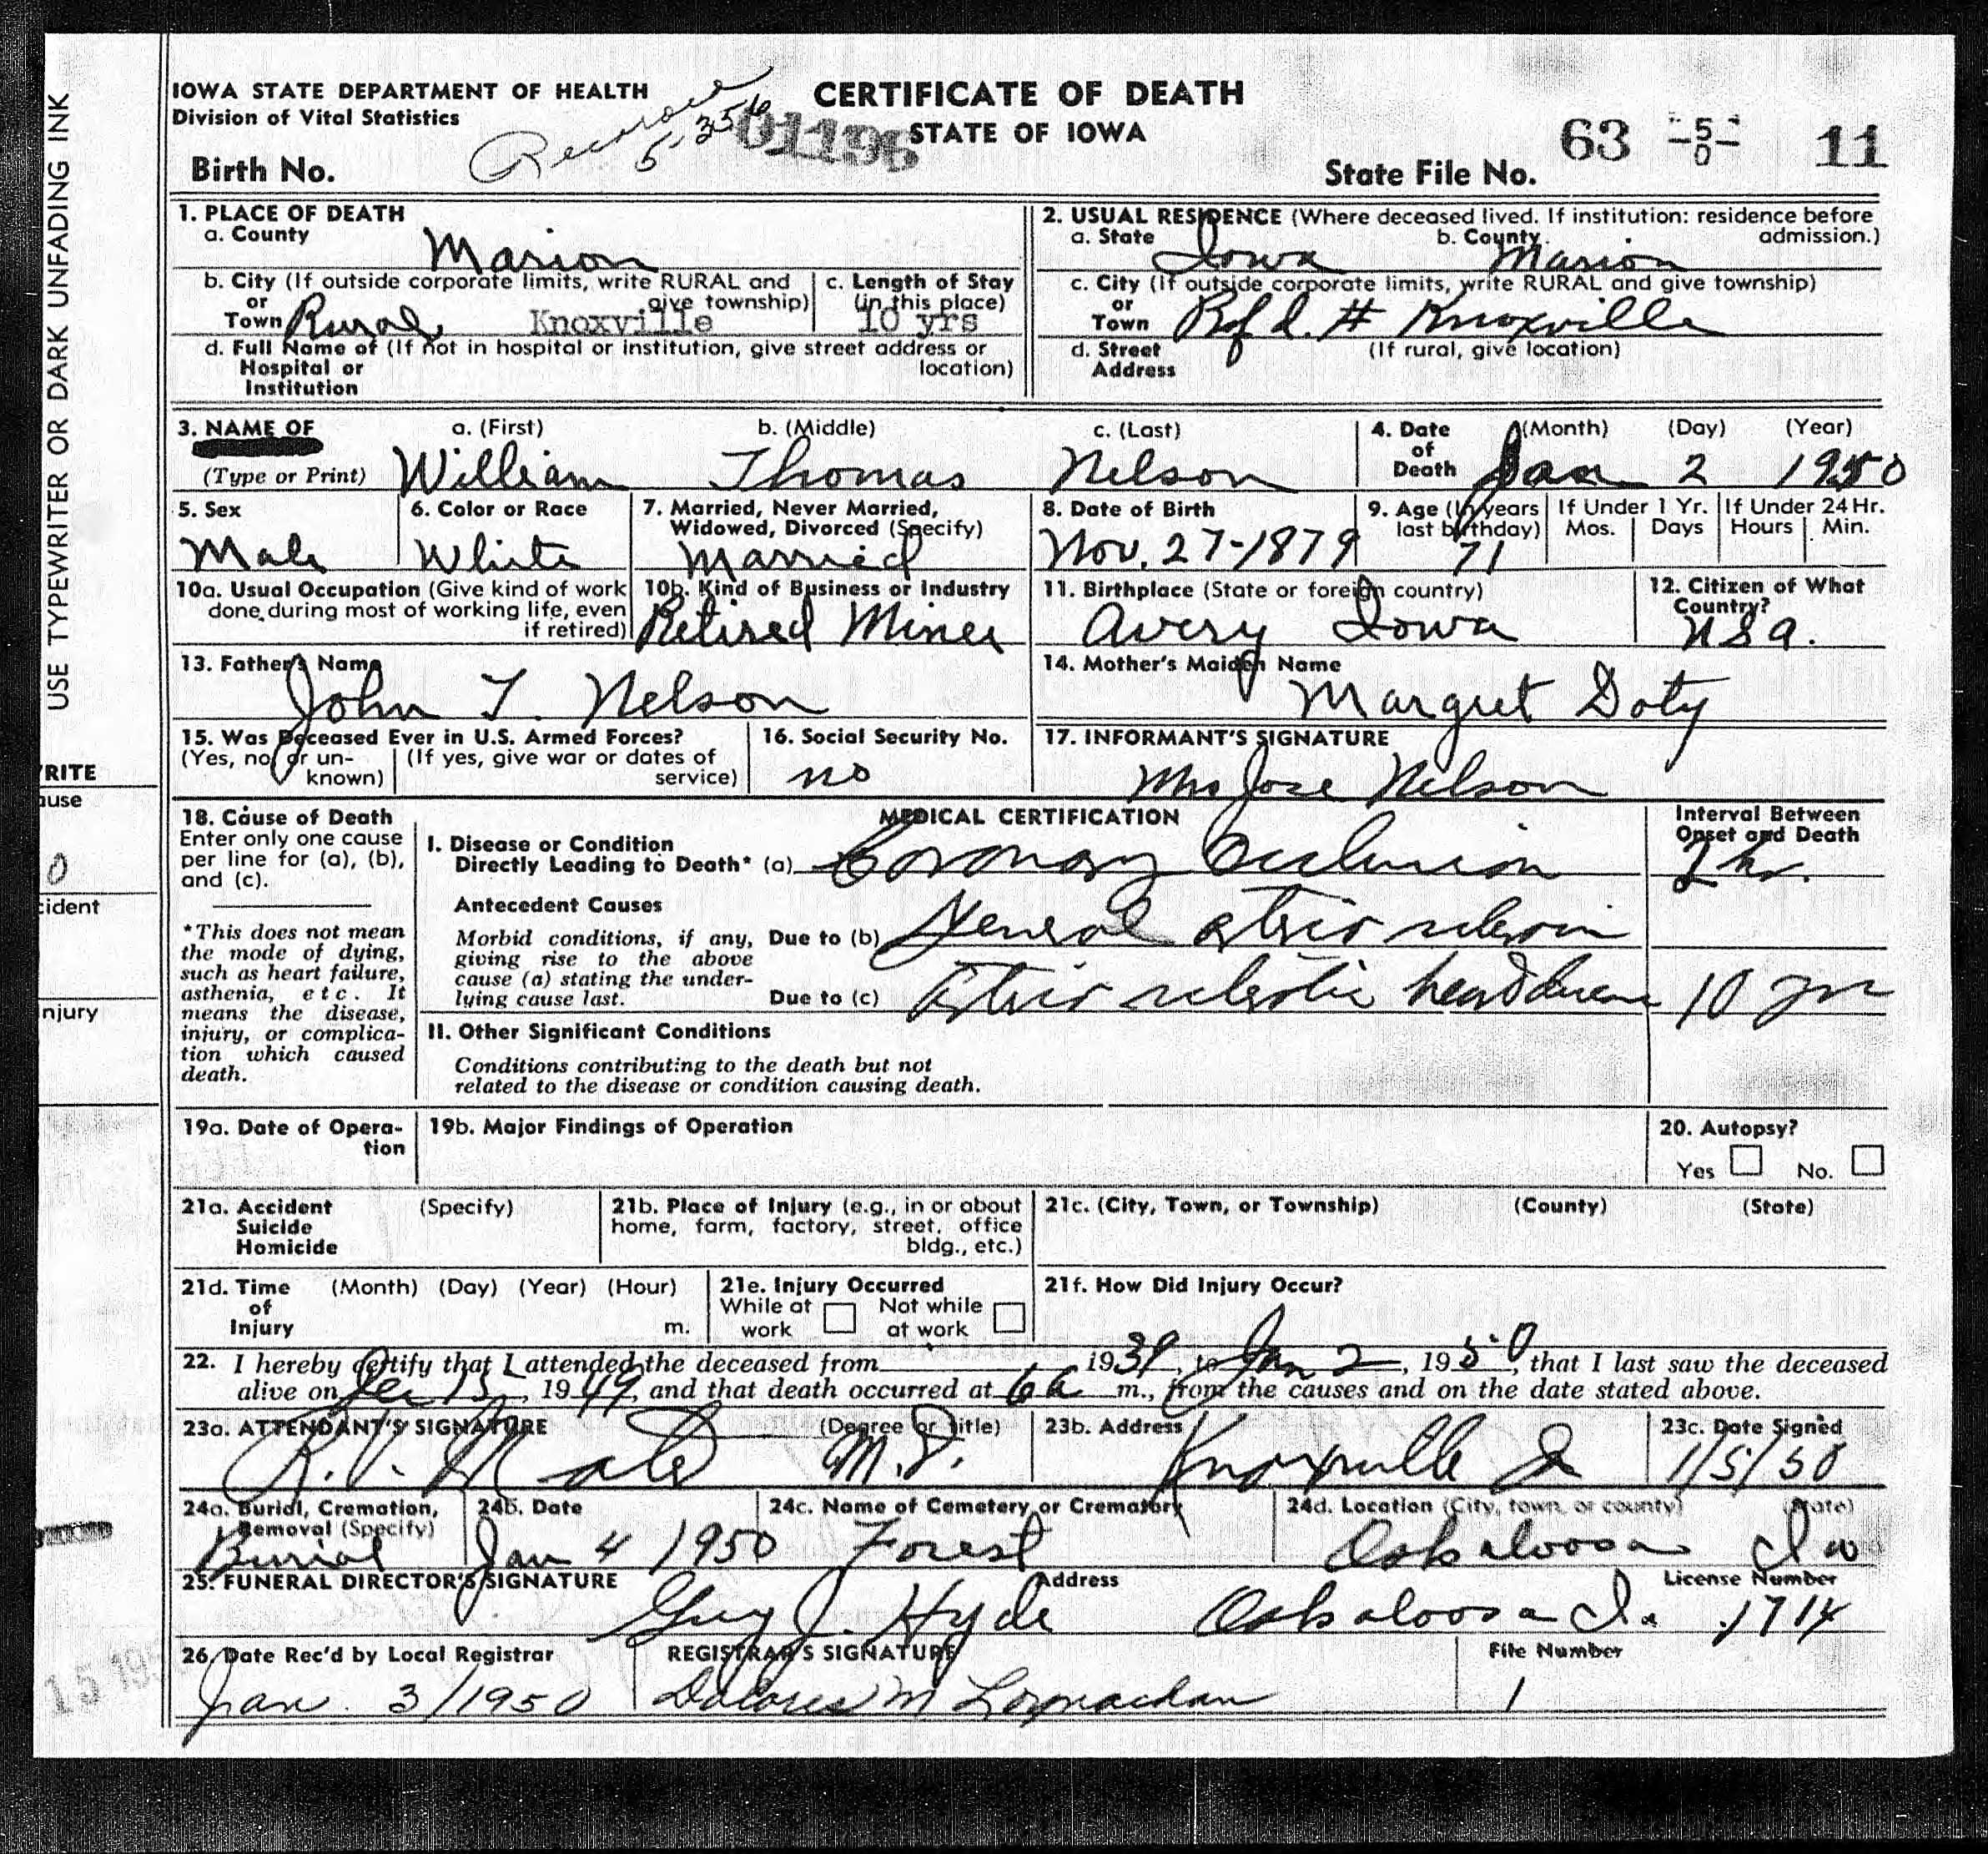 USE TYPEWRITER OR DARK UNFADING INK
RITE
ause
0
cident
njury
IOWA STATE DEPARTMENT OF HEALTH
Division of Vital Statistics
CERTIFICATE OF DEATH
STATE OF IOWA
01196
63 -5 0- 11
Birth No.
State File No.
1. PLACE OF DEATH
a. County Marion
b. City (If outside corporate limits, write RURAL and give township)
or Town Rural Knoxville
c. Length of Stay (in this place) 10 yrs
d. Full Name of (If not in hospital or institution, give street address or location)
Hospital or Institution
2. USUAL RESIDENCE (Where deceased lived. If institution: residence before admission.)
a. State Iowa b. County Marion
c. City (If outside corporate limits, write RURAL and give township)
or Town Rfd. # Knoxville
d. Street Address (If rural, give location)
3. NAME OF
(Type or Print)
a. (First) William b. (Middle) Thomas c. (Last) Nelson
4. Date of Death (Month) (Day) (Year) Jan 2 1950
5. Sex Male
6. Color or Race White
7. Married, Never Married, Widowed, Divorced (Specify) Married
8. Date of Birth Nov. 27-1879
9. Age (In years last birthday) 71
If Under 1 Yr. Mos. Days
If Under 24 Hr. Hours Min.
10a. Usual Occupation (Give kind of work done during most of working life, even if retired)
10b. Kind of Business or Industry Retired Miner
11. Birthplace (State or foreign country) Avery Iowa
12. Citizen of What Country? USA.
13. Father's Name John T. Nelson
14. Mother's Maiden Name Margret Doty
15. Was Deceased Ever in U.S. Armed Forces?
(Yes, no, or unknown) (If yes, give war or dates of service)
16. Social Security No. no
17. INFORMANT'S SIGNATURE Mrs Jose Nelson
18. Cause of Death
Enter only one cause per line for (a), (b), and (c).
*This does not mean the mode of dying, such as heart failure, asthenia, etc. It means the disease, injury, or complication which caused death.
MEDICAL CERTIFICATION
Interval Between Onset and Death
I. Disease or Condition
Directly Leading to Death* (a) Coronary Occlusion 2 hr.
Antecedent Causes
Morbid conditions, if any, giving rise to the above cause (a) stating the underlying cause last.
Due to (b) General
Due to (c) heart disease 10 yr
II. Other Significant Conditions
Conditions contributing to the death but not
related to the disease or condition causing death.
19a. Date of Operation
19b. Major Findings of Operation
20. Autopsy?
Yes No.
21a. Accident Suicide Homicide (Specify)
21b. Place of Injury (e.g., in or about home, farm, factory, street, office bldg., etc.)
21c. (City, Town, or Township) (County) (State)
21d. Time of Injury (Month) (Day) (Year) (Hour) m.
21e. Injury Occurred
While at work Not while at work
21f. How Did Injury Occur?
22. I hereby certify that I attended the deceased from 1939, to Jan 2, 1950, that I last saw the deceased
alive on 1949, and that death occurred at 6 a m., from the causes and on the date stated above.
23a. ATTENDANT'S SIGNATURE (Degree or title) R. V. M.D.
23b. Address Knoxville Ia
23c. Date Signed 1/5/50
24a. Burial, Cremation, Removal (Specify) Burial
24b. Date Jan 4 1950
24c. Name of Cemetery or Crematory Forest
24d. Location (City, town, or county) (State) Oskaloosa Iow
25. FUNERAL DIRECTOR'S SIGNATURE Guy J. Hyde
Address Oskaloosa Ia.
License Number 1714
26. Date Rec'd by Local Registrar Jan. 3/1950
REGISTRAR'S SIGNATURE Dolores M
File Number 1